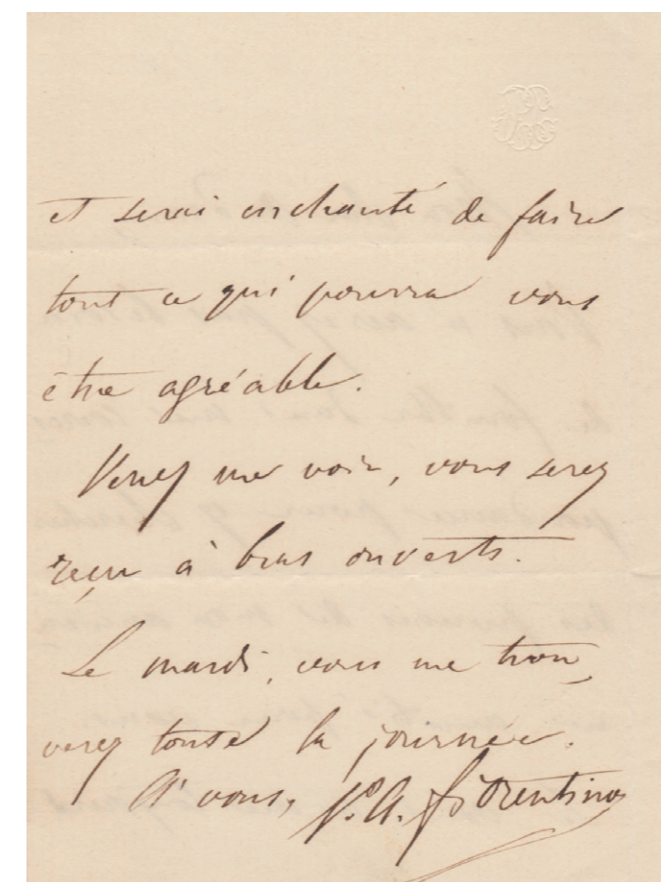 et serai enchanté de faire
tout ce qui pourra vous
être agréable.
Venez me voir, vous serez
reçu à bras ouverts.
Le mardi, vous me trou-
verez toute la journée.
A vous, P. A. Fiorentino